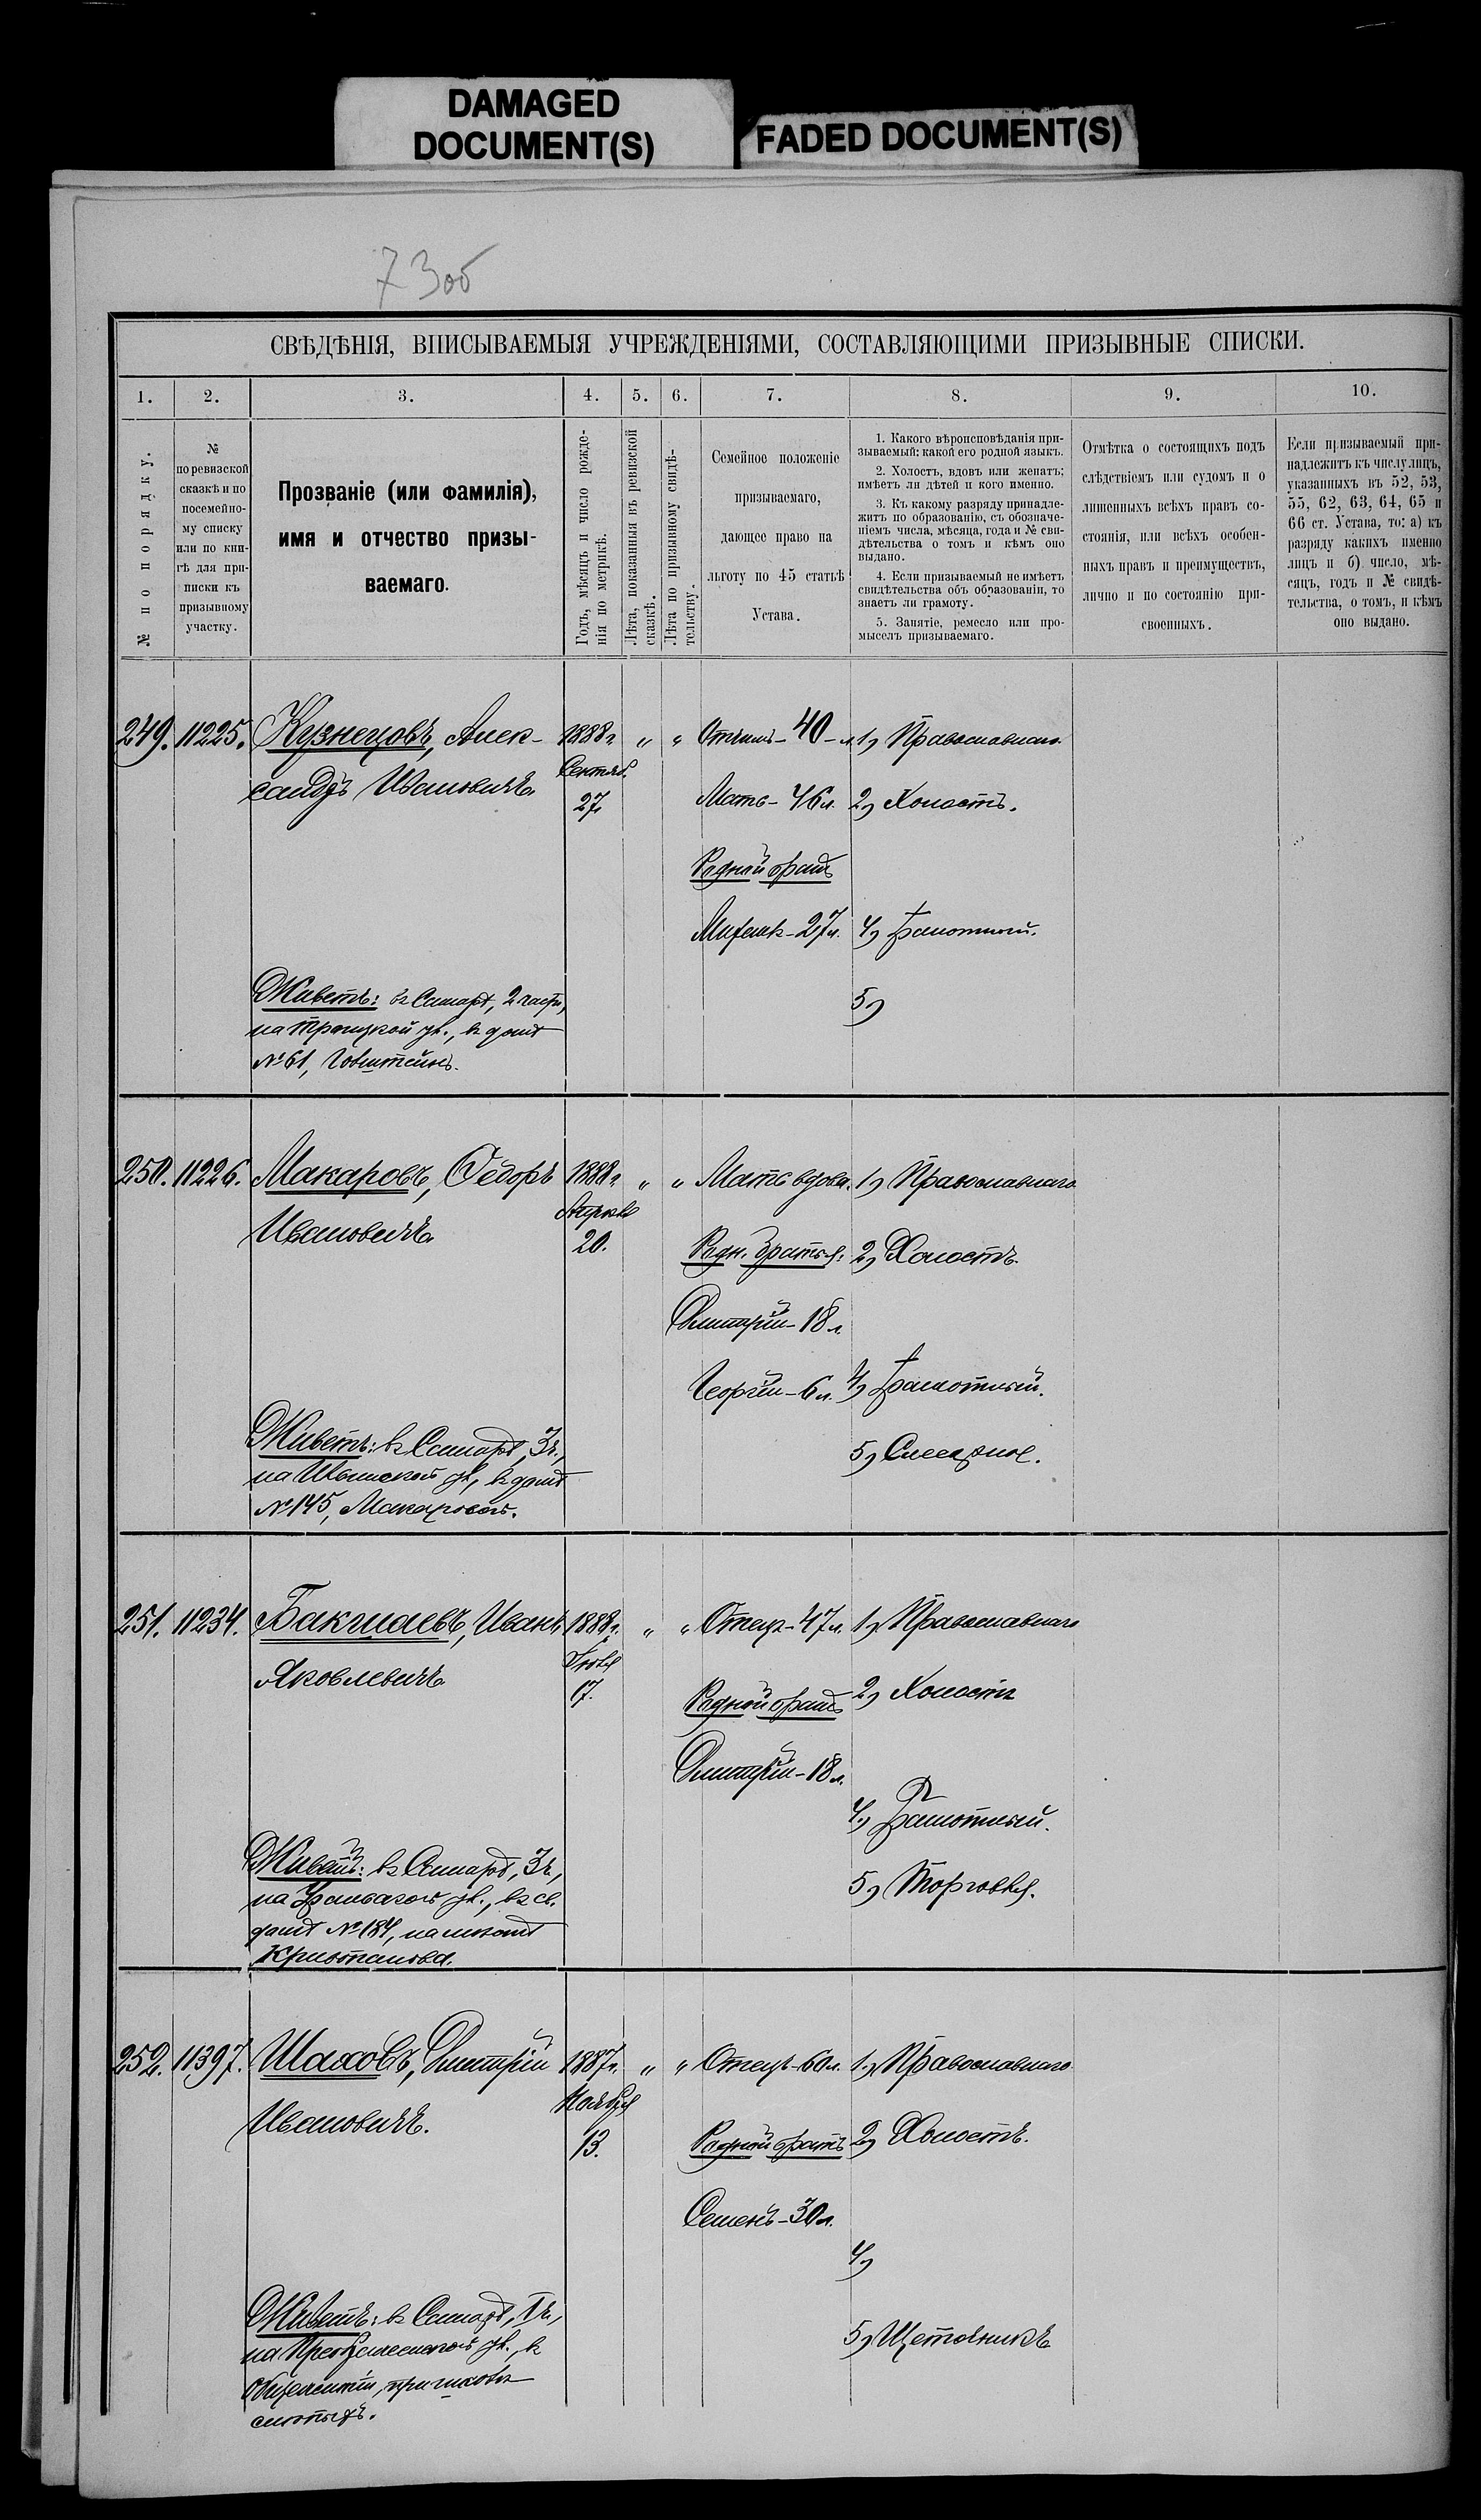 DAMAGED
DOCUMENT(S)
FADED DOCUMENT(S)
73об
СВѢДѢНІЯ, ВПИСЫВАЕМЫЯ УЧРЕЖДЕНІЯМИ, СОСТАВЛЯЮЩИМИ ПРИЗЫВНЫЕ СПИСКИ.
1. 2. 3. 4. 5. 6. 7. 8. 9. 10.
№ по порядку.
№
по ревизской
сказкѣ и по
посемейно-
му списку
или по кни-
гѣ для при-
писки къ
призывному
участку.
Прозваніе (или фамилія),
имя и отчество призы-
ваемаго.
Годъ, мѣсяцъ и число рожде-
нія по метрикѣ.
Лѣта, показанныя въ ревизской
сказкѣ.
Лѣта по призывному свидѣ-
тельству.
Семейное положеніе
призываемаго,
дающее право на
льготу по 45 статьѣ
Устава.
1. Какого вѣроисповѣданія при-
зываемый; какой его родной языкъ.
2. Холостъ, вдовъ или женатъ;
имѣетъ ли дѣтей и кого именно.
3. Къ какому разряду принадле-
житъ по образованію, съ обозначе-
ніемъ числа, мѣсяца, года и № сви-
дѣтельства о томъ и кѣмъ оно
выдано.
4. Если призываемый не имѣетъ
свидѣтельства объ образованіи, то
знаетъ ли грамоту.
5. Занятіе, ремесло или про-
мыселъ призываемаго.
Отмѣтка о состоящихъ подъ
слѣдствіемъ или судомъ и о
лишенныхъ всѣхъ правъ со-
стоянія, или всѣхъ особен-
ныхъ правъ и преимуществъ,
лично и по состоянію при-
своенныхъ.
Если призываемый при-
надлежитъ къ числу лицъ,
указанныхъ въ 52, 53,
55, 62, 63, 64, 65 и
66 ст. Устава, то: а) къ
разряду какихъ именно
лицъ и б) число, мѣ-
сяцъ, годъ и № свидѣ-
тельства, о томъ, и кѣмъ
оно выдано.
249. 11225. Кузнецовъ, Алек- 1888г. " " Отчимъ-40-л. 1) Православнаго.
сандръ Ивановичъ. Сентяб.
27. Мать-46л. 2) Холостъ.
Родной братъ
Михаилъ-27л. 4) Грамотный.
Живетъ: въ Самарѣ, 2 части,
на Троицкой ул., въ домѣ
№61,
5)
250. 11226. Макаровъ, Ѳедоръ 1888г. " " Мать вдова. 1) Православнаго
Ивановичъ. Апрѣля
20. Родн. братья: 2) Холостъ.
Дмитрій-18л.
Георгій-6л. 4) Грамотный.
Живетъ: въ Самарѣ, 3ч.,
на ул., въ домѣ
№145, Макаровой.
5)
251. 11234. Бакшаевъ, Иванъ 1888г. " " Отецъ-47л. 1) Православнаго
Яковлевичъ
17. Родной братъ 2) Холостъ
Дмитрій-18л.
4) Грамотный.
Живетъ: въ Самарѣ, 3ч.,
на ул., въ св.
домѣ №184,
5) Торговля.
252. 11397. Шаховъ, Дмитрій 1887г. " " Отецъ-60л. 1) Православнаго
Ивановичъ. Ноября
13. Родной братъ 2) Холостъ.
Семенъ-30л.
4)
Живетъ: въ Самарѣ, 1ч,
на ул., въ
общежитіи, при школѣ
слѣпыхъ.
5) Щеточникъ